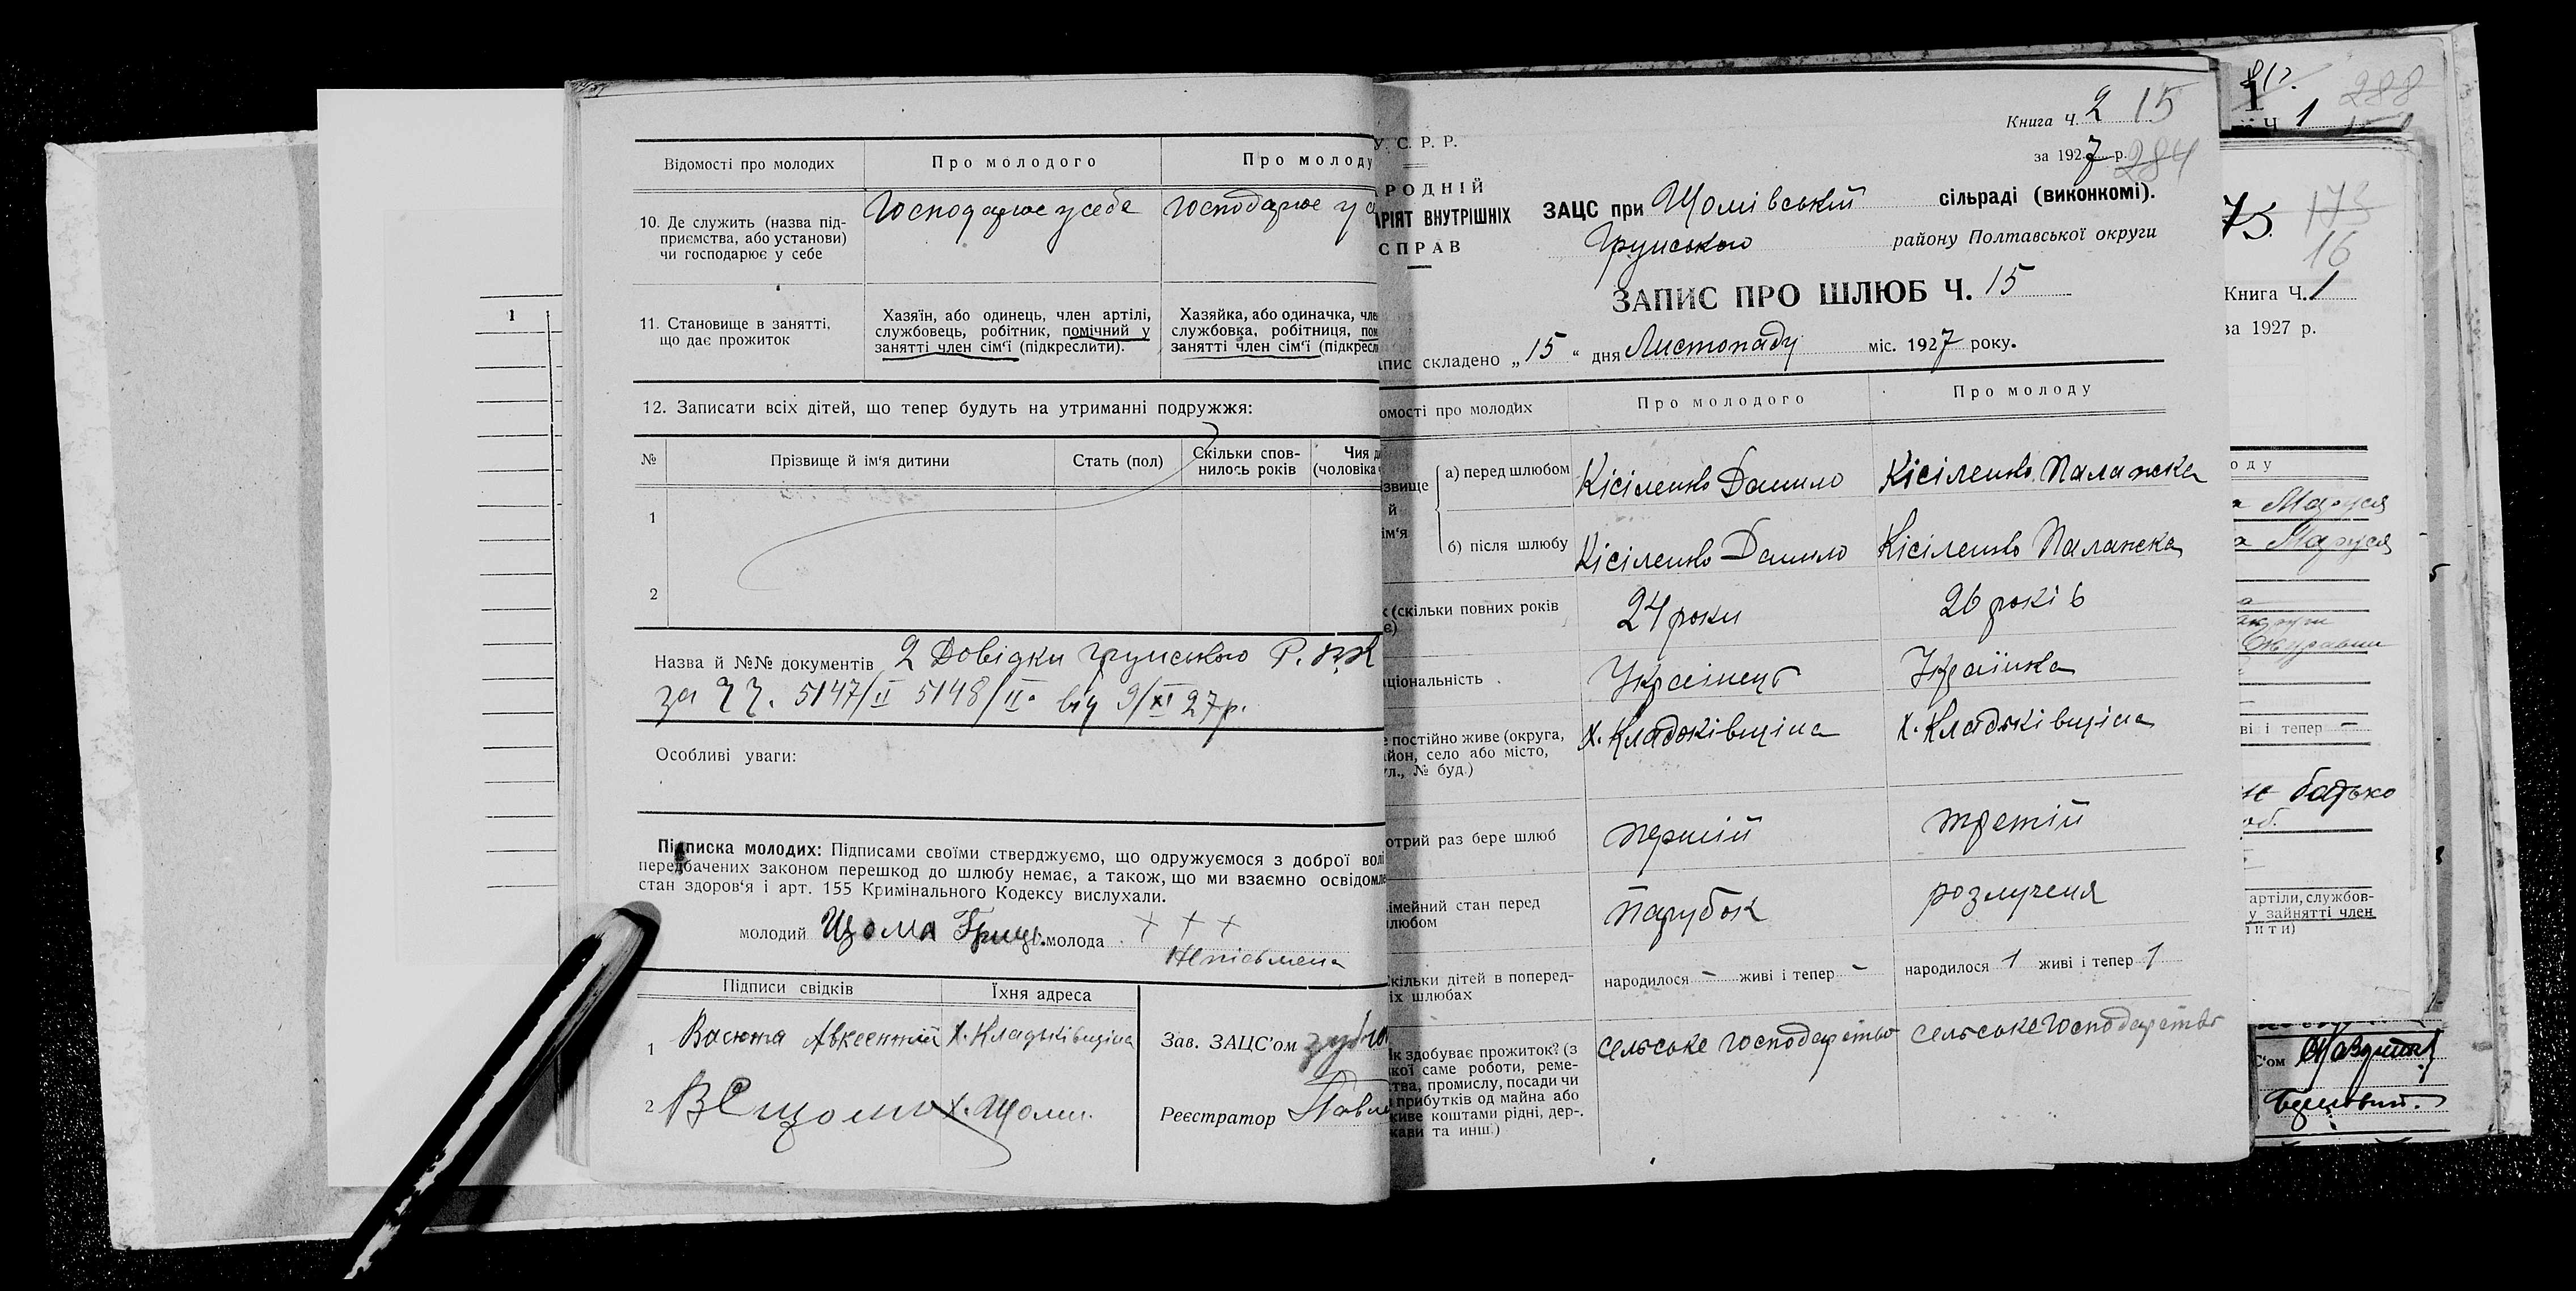 Відомості про молодих
Про молодого
Про молоду
10. Де служить (назва під-
приємства, або установи)
чи господарює у себе
Господарює у себе
господарює у с
11. Становище в занятті,
що дає прожиток
Хазяїн, або одинець, член артілі,
службовець, робітник, помічний у
занятті член сім'ї (підкреслити).
Хазяйка, або одиначка, чле
службовка, робітниця, пом
занятті член сім'ї (підкресл
12. Записати всіх дітей, що тепер будуть на утриманні подружжя:
№
Прізвище й ім'я дитини
Стать (пол)
Скільки спов-
нилось років
Чия д
(чоловіка
1
2
Назва й №№ документів 2 Довідки Грунського Р.
за 5147/II 5148/II від 9/XI 27р.
Особливі уваги:
Підписка молодих: Підписами своїми стверджуємо, що одружуємося з доброї волі
передбачених законом перешкод до шлюбу немає, а також, що ми взаємно освідомле
стан здоров'я і арт. 155 Кримінального Кодексу вислухали.
молодий Щома Гриць. молода + + +
Нпісьмена
Підписи свідків
Їхня адреса
1 Васюта Авксентий Х. Кладьківщіна
2 Х. Щоми.
Зав. ЗАЦС'ом
Реєстратор Павл
У. С. Р. Р.
РОДНІЙ
АРІЯТ ВНУТРІШНІХ
СПРАВ
Книга Ч. 2 15
за 1927 р. 284
ЗАЦС при Щомівській сільраді (виконкомі).
Грунського району Полтавської округи
ЗАПИС ПРО ШЛЮБ Ч. 15
апис складено „15" дня Листопаду міс. 1927 року.
омості про молодих
Про молодого
Про молоду
ізвище
й
ім'я
а) перед шлюбом
Кісіленко Данило
Кісіленко Палажка
б) після шлюбу
Кісіленко Данило
Кісіленко Палажка
к (скільки повних років
є)
24 роки
26 років
аціональність
Українець
Українка
е постійно живе (округа,
айон, село або місто,
ул., № буд.)
х. Кладьківщіна
х. Кладьківщіна
отрий раз бере шлюб
перший
третій
імейний стан перед
любом
Парубок
розлученя
кільки дітей в поперед-
іх шлюбах
народилося - живі і тепер -
народилося 1 живі і тепер 1
Як здобуває прожиток? (з
кої саме роботи, реме-
тва, промислу, посади чи
прибутків од майна або
живе коштами рідні, дер-
жави та инш.)
сельське господарство
сельське господарство
1
288
Ч 1
75
173
16
Книга Ч. 1
за 1927 р.
оду
а Маруся
а Маруся
ві і тепер -
батько
артіли, службов-
у зайнятті член
іти)
С'ом
1